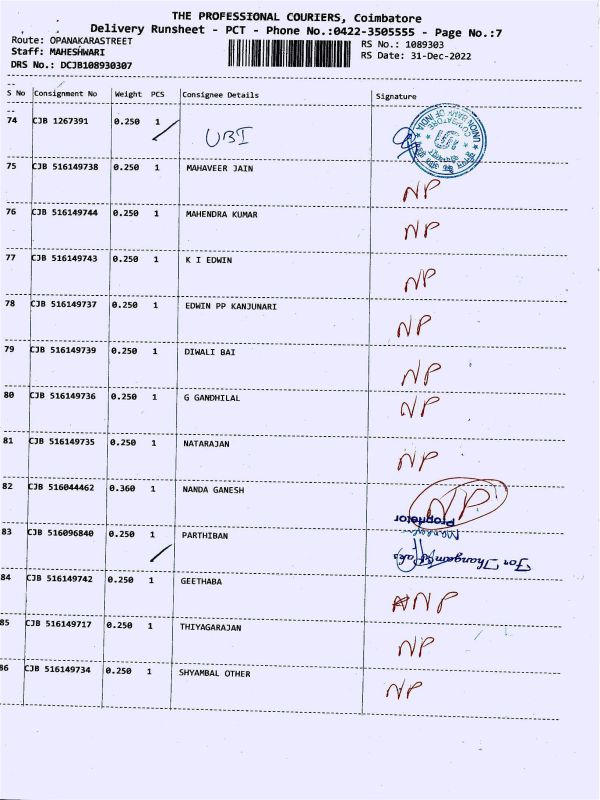 THE PROFESSIONAL COURIERS, Coimbatore
Delivery Runsheet - PCT - Phone No.:0422-3505555 - Page No.:7
Route: OPANAKARASTREET RS No.: 1089303
Staff: MAHESHWARI RS Date: 31-Dec-2022
DRS No.: DCJB108930307
S No Consignment No Weight PCS Consignee Details Signature
74 CJB 1267391 0.250 1 UBI
UNION BANK OF INDIA
COIMBATORE
75 CJB 516149738 0.250 1 MAHAVEER JAIN NP
76 CJB 516149744 0.250 1 MAHENDRA KUMAR NP
77 CJB 516149743 0.250 1 K I EDWIN NP
78 CJB 516149737 0.250 1 EDWIN PP KANJUNARI NP
79 CJB 516149739 0.250 1 DIWALI BAI NP
80 CJB 516149736 0.250 1 G GANDHILAL NP
81 CJB 516149735 0.250 1 NATARAJAN NP
82 CJB 516044462 0.360 1 NANDA GANESH NP
Proprietor
83 CJB 516096840 0.250 1 PARTHIBAN
For Thangam
84 CJB 516149742 0.250 1 GEETHABA NP
85 CJB 516149717 0.250 1 THIYAGARAJAN NP
86 CJB 516149734 0.250 1 SHYAMBAL OTHER NP